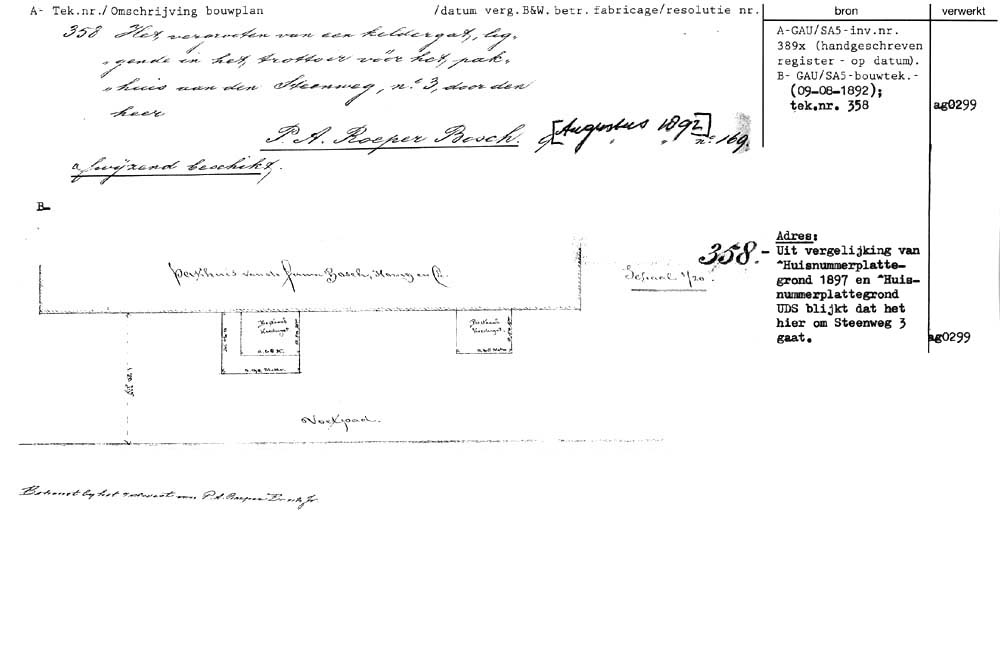 A- Tek.nr./Omschrijving bouwplan /datum verg.B&W.betr.fabricage/resolutie nr. bron verwerkt
358 Het, vergrooten van een keldergat, lig-
"gende in het, trottoir vóór het, pak-
"huis aan den Steenweg, no. 3, door den
heer
P. A. Roeper Bosch. [Augustus 1892] no. 169.
afwijzend beschikt.
A-GAU/SA5-inv.nr.
389x (handgeschreven
register - op datum).
B- GAU/SA5-bouwtek.-
(09-08-1892);
tek.nr. 358 ag0299
B-
358.-
Adres:
Uit vergelijking van
"Huisnummerplatte-
grond 1897 en "Huis-
nummerplattegrond
UDS blijkt dat het
hier om Steenweg 3
gaat. ag0299
Perkhuis van de Bosch, en C.
Schaal 1/20.
Bestaand
Bestaand
Voetpad.
P. A. Roeper Bosch Jr.